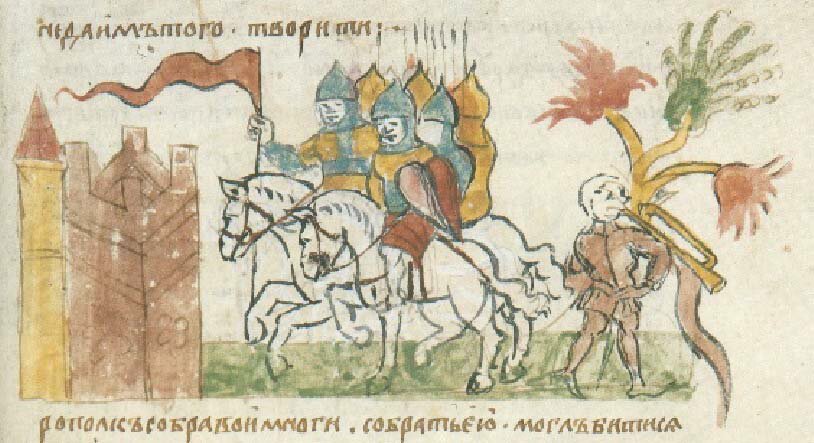 недаимътого · творити :~
рополкъсобравоимноги · собратьею · моглъбитися